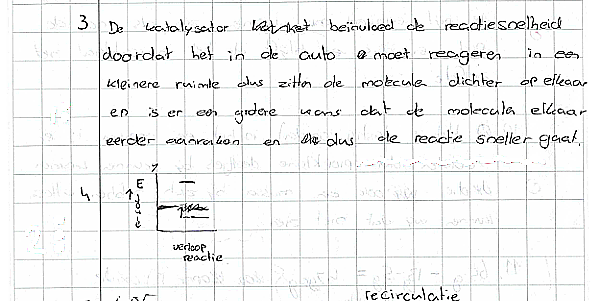 3 De katalysator beïnvloed de reactiesnelheid
doordat het in de auto moet reageren in een
kleinere ruimte dus zitten de molecula dichter op elkaar
en is er een grotere kans dat de molecula elkaar
eerder aanraken en dus de reactie sneller gaat.
4
E
verloop
reactie
recirculatie